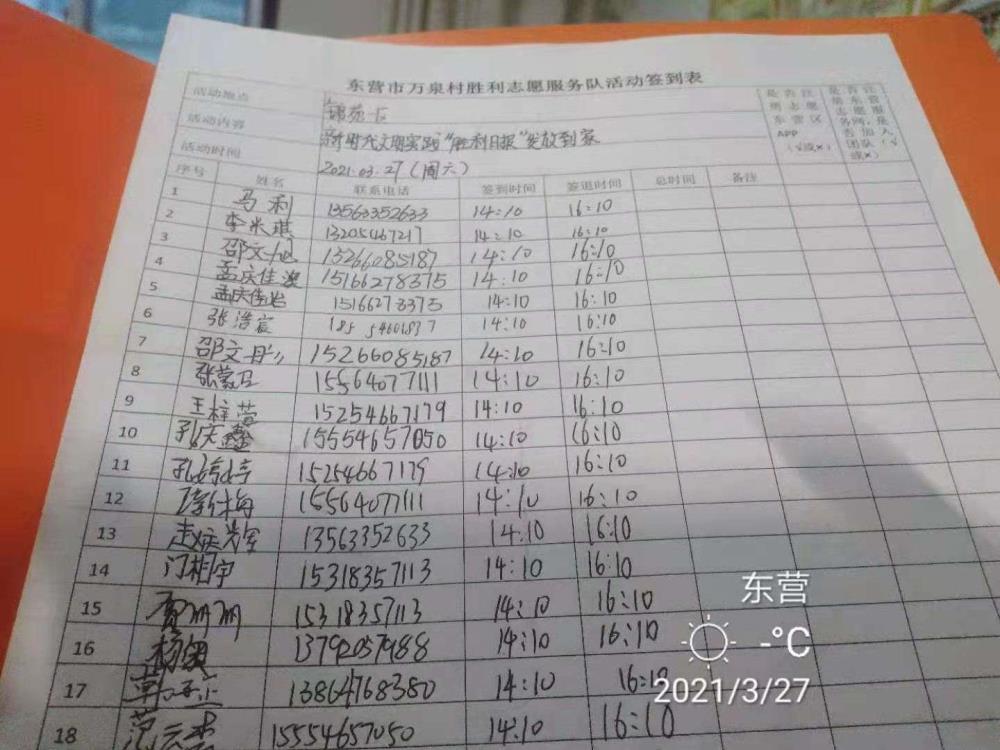 东营市万泉村胜利志愿服务队活动签到表
活动地点 锦苑七
活动内容 新时代文明实践“胜利日报”发放到家
活动时间 2021.03.27(周六)
是否注册志愿东营区APP(√或×)
是否注册东营志愿服务网,是否加入团队(√或×)
序号 姓名 联系电话 签到时间 签退时间 总时间 备注
1 马利 13563352633 14:10 16:10
2 李米琪 13205467217 14:10 16:10
3 邵文 13266085187 14:10 16:10
4 孟庆佳 15166278375 14:10 16:10
5 孟庆 15166278375 14:10 16:10
6 张浩宸 14:10 16:10
7 邵文 15266085187 14:10 16:10
8 张 15564077111 14:10 16:10
9 王桂萱 15254667179 14:10 16:10
10 孔庆鑫 15554657050 14:10 16:10
11 孔 15254667179 14:10 16:10
12 海 15564077111 14:10 16:10
13 赵 13563352633 14:10 16:10
14 门相宇 15318357113 14:10 16:10
15 贾丽丽 15318357113 14:10 16:10
16 杨 13792057988 14:10 16:10
17 13864768380 14:10 16:10
18 范云 15554657050 14:10 16:10
东营
-°C
2021/3/27